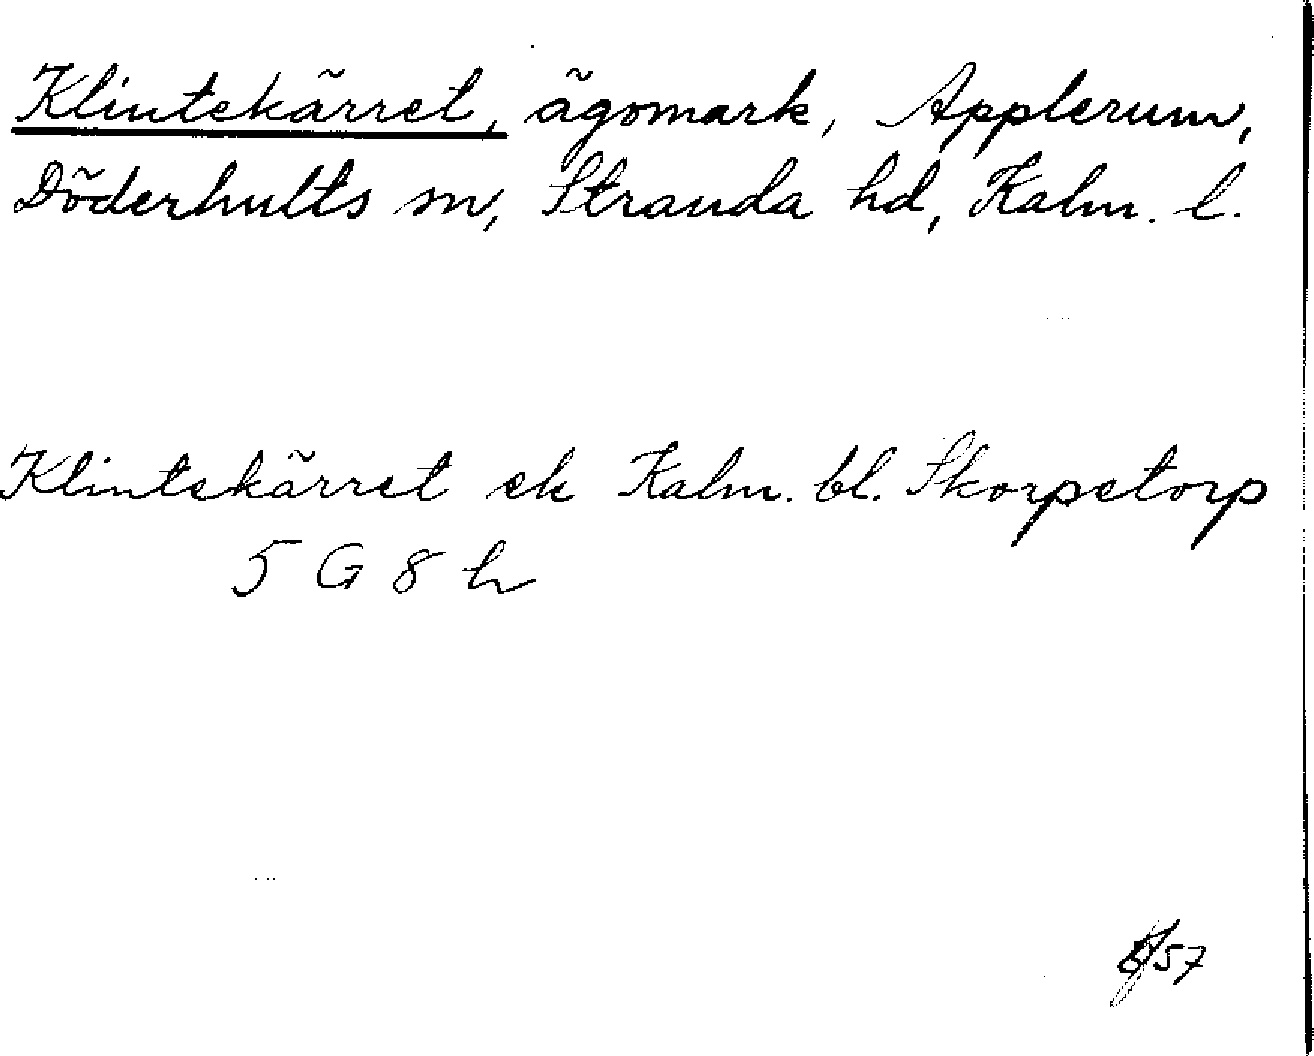 Klintekärret, ägomark, Applerum,
Döderhults sn, Stranda hd, Kalm. l.
Klintekärret ek Kalm. bl. Skorpetorp
5 G 8 h
57